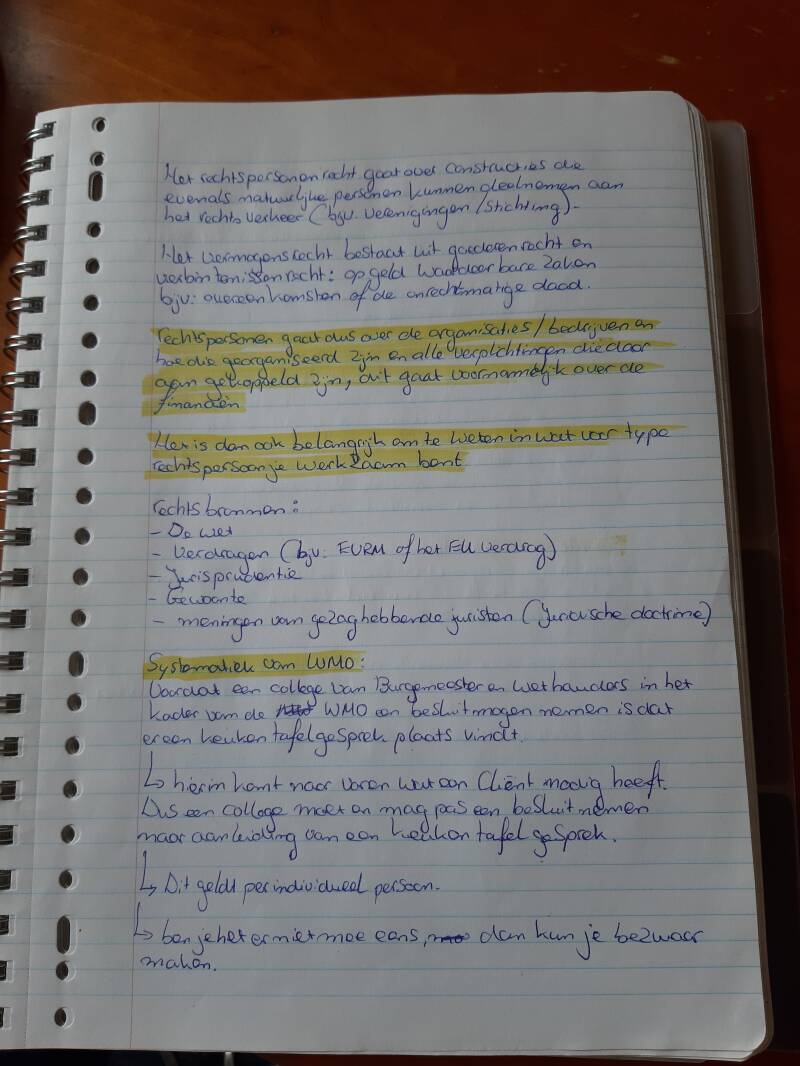 Het rechtspersonenrecht gaat over constructies die
evenals natuurlijke personen kunnen deelnemen aan
het rechtsverkeer (bijv. verenigingen/stichting).
Het vermogensrecht bestaat uit goederenrecht en
verbintenissenrecht: op geld waardeerbare zaken
bijv: overeenkomsten of de onrechtmatige daad.
rechtspersonen gaat dus over de organisaties/bedrijven en
hoe die georganiseerd zijn en alle verplichtingen die daar
aan gekoppeld zijn, dit gaat voornamelijk over de
financiën
Het is dan ook belangrijk om te weten in wat voor type
rechtspersoon je werkzaam bent.
rechtsbronnen:
- De wet
- Verdragen (bijv. EVRM of het EU verdrag)
- Jurisprudentie
- Gewoonte
- meningen van gezaghebbende juristen (Juridische doctrine)
Systematiek van WMO:
Voordat een college van Burgemeester en wethouders in het
kader van de WMO een besluit mogen nemen is dat
er een keukentafelgesprek plaats vindt.
↳ hierin komt naar voren wat een Cliënt nodig heeft.
Dus een college moet en mag pas een besluit nemen
naar aanleiding van een keukentafelgesprek.
↳ Dit geldt per individueel persoon.
↳ ben je het er niet mee eens, dan kun je bezwaar
maken.